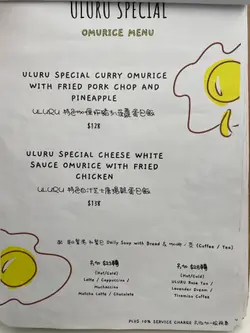 ULURU SPECIAL
OMURICE MENU
ULURU SPECIAL CURRY OMURICE
WITH FRIED PORK CHOP AND
PINEAPPLE
ULURU 特色咖喱
蛋包飯
$128
ULURU SPECIAL CHEESE WHITE
SAUCE OMURICE WITH FRIED
CHICKEN
ULURU 特色白汁芝士唐揚雞蛋包飯
$138
Daily Soup with Bread & 咖啡 / 茶 (Coffee / Tea)
(Hot/Cold)
Latte / Cappuccino /
Mochaccino
Matcha Latte / Chocolate
(Hot/Cold)
ULURU Rock Tea /
Lavender Dream /
Tiramisu Coffee
PLUS 10% SERVICE CHARGE 另收加一服務費